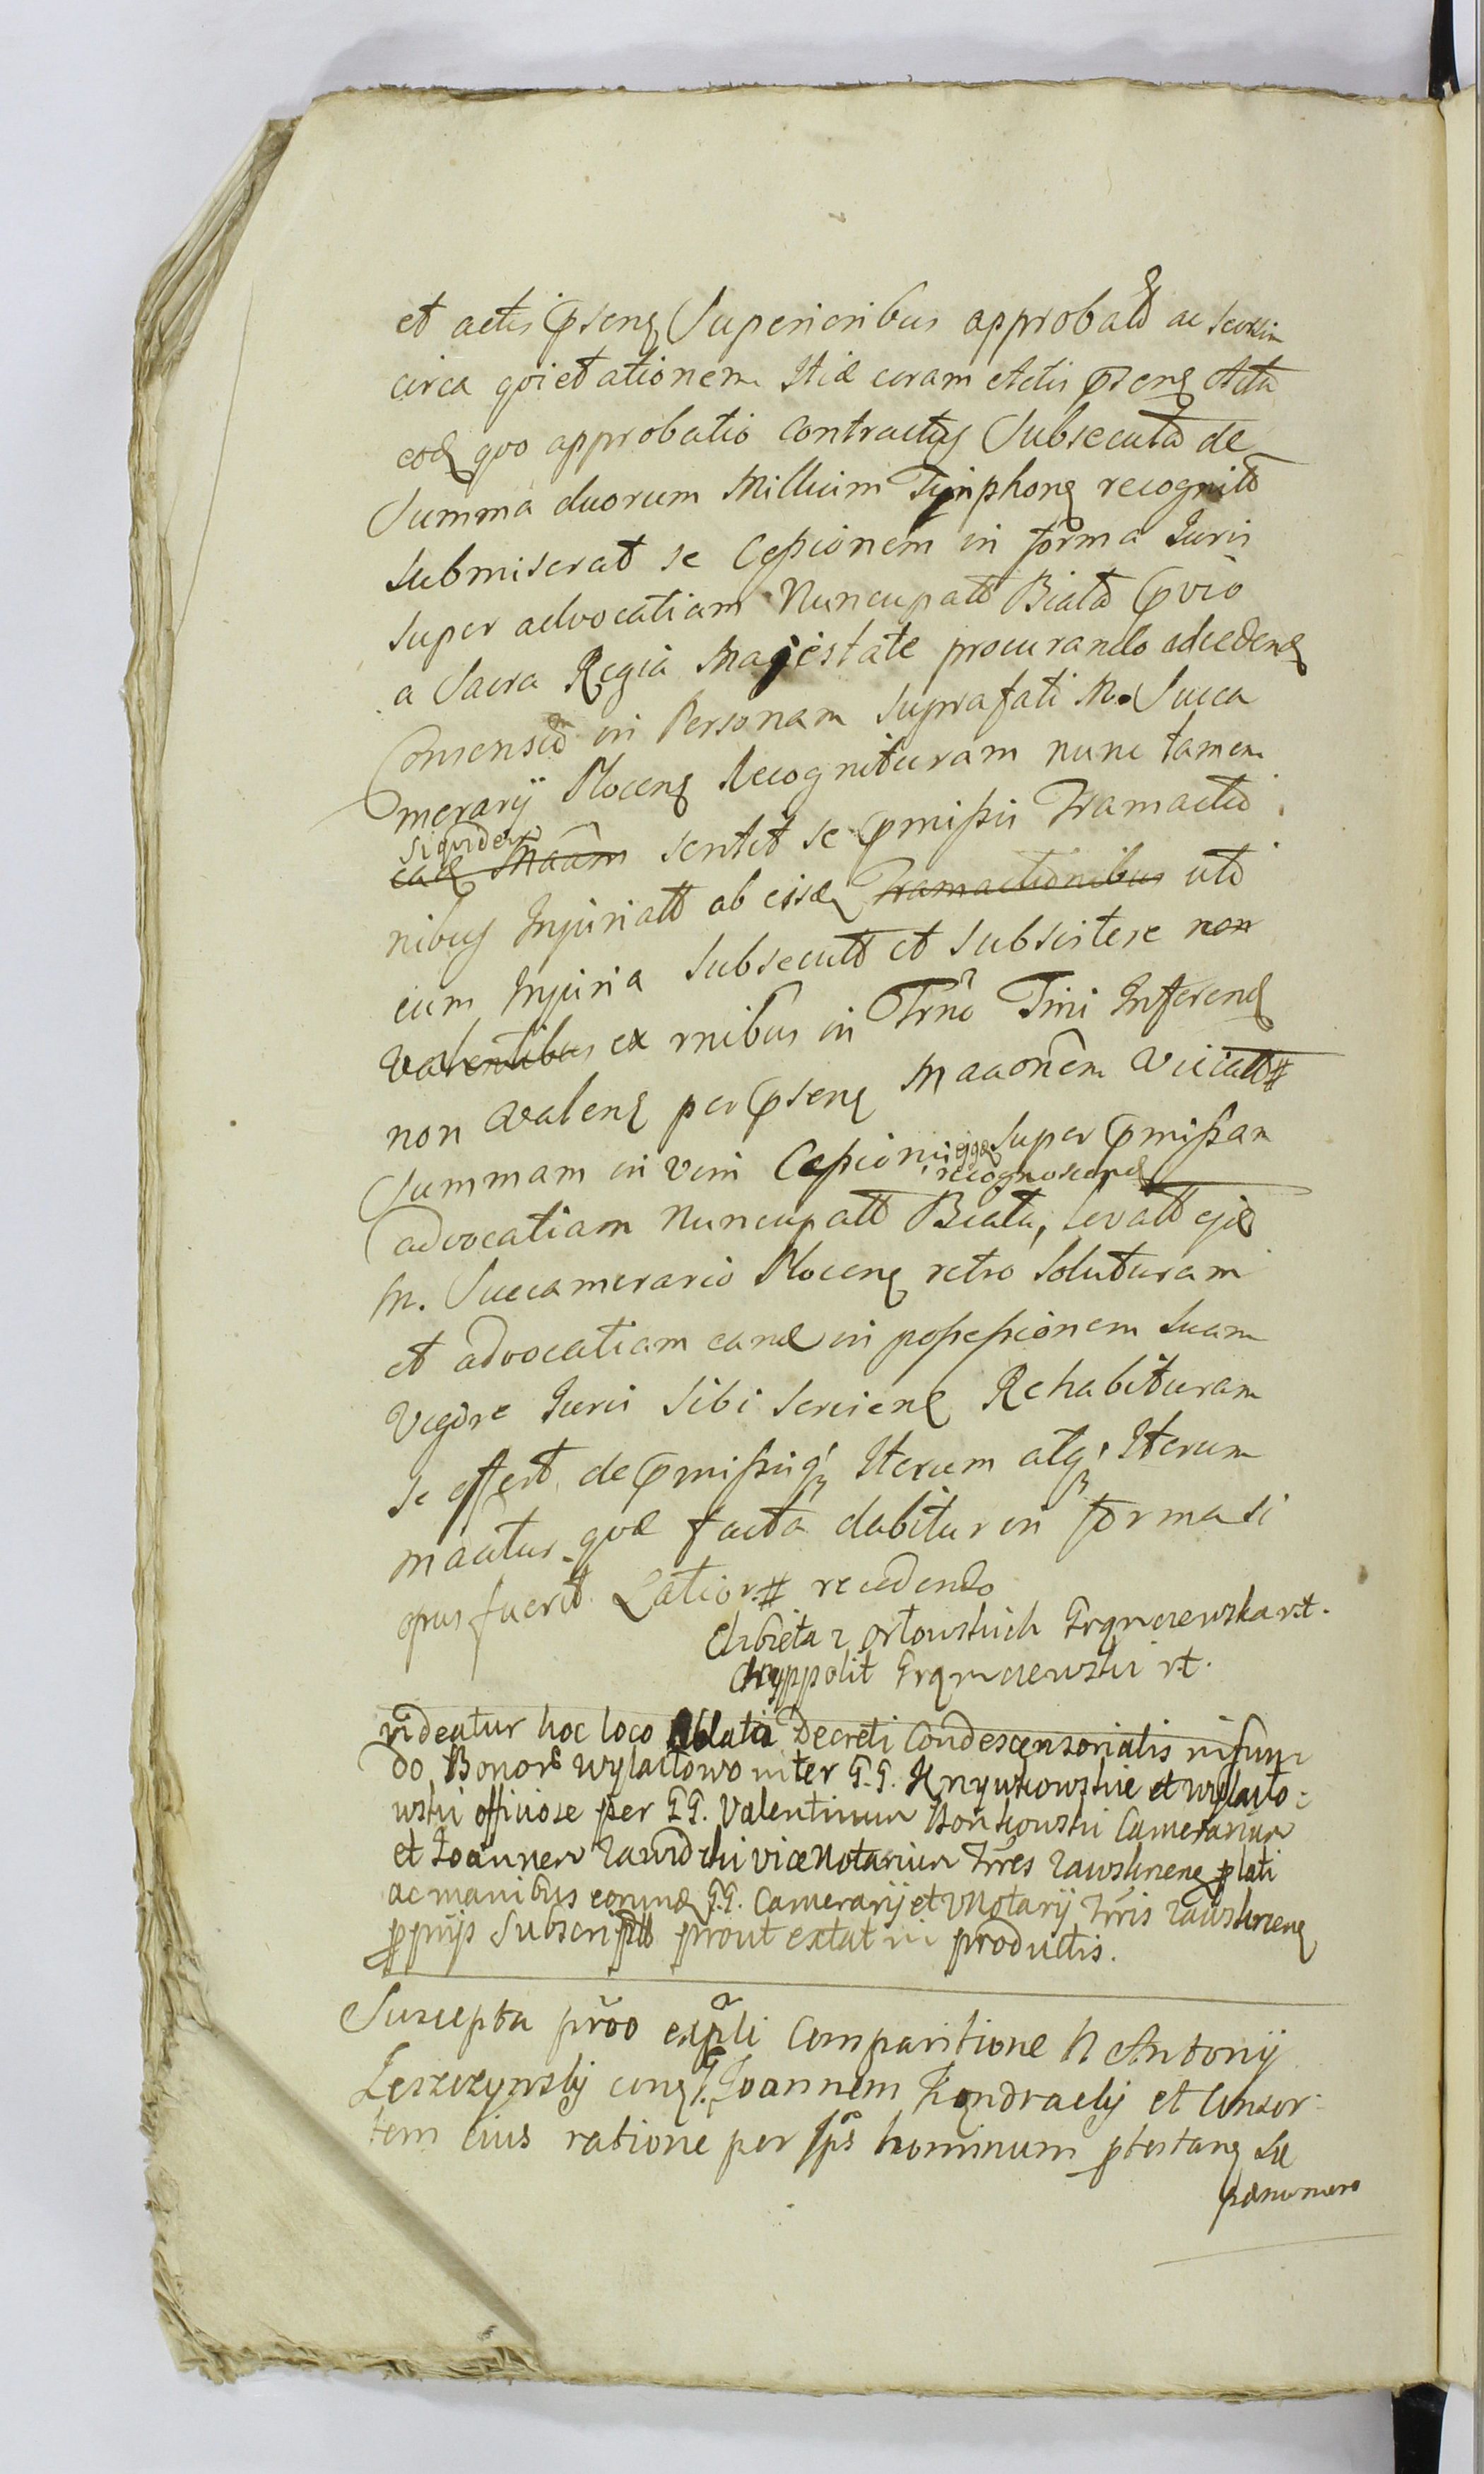 et actis pnseng Superioribus approbatt ac seorsim
circa qvietationem Stiæ coram Actis pnseng Acta
eod qvo approbatio contractus Subsecuta de
Summa duorum Millium Tymphong recognitt
submiserat se Cessionem in forma Juris
super advocatiam Nuncupatt Biała pvio
a Sacra Regia Majestate procurando accedeng
Consensu in Personam suprafati M. Succa
merarij Ploceng Recognituram nunc tamen
siqvidem
sentit se pmissis Transactio
nibus Injuriatt ab eisd uti
cum Injuria subsecutt et subsistere non
ex rnibus in Trno Tini Infereng
non valeng per pseng Maaonem viciatt #
Summam in vim Cessionis super pmissam
recognoscend
advocatiam nuncupatt Biała, levatt
M. Succamerario Ploceng retro soluturam
et advocatiam eand in possessionem suam
vigore Juris sibi servieng Rehabituram
se offert de pmissisq Iterum atq Iterum
maatur qvæ facta dabitur in forma si
opus fuerit Latior # recedendo
Elzbieta z Orłowskich Frąnczewska rt.
Hyppolit Frąnczewski rt.
videatur hoc loco Oblata Decreti Condescensorialis in fun
do Bonor Wylazłowo inter G.G. Knyszkowskie et Wylazło
wski officiose per GG. Valentinum Bońkowski Camerarium
et Joannem Zawidzki vice Notarium Trres Zawskrzeng plati
ac manibus eorund G.G. Camerarij et VNotarij Trris Zawskrzeng
pprijs Subscriptt prout extat in productis.
Suscepta proo expli Comparitione N Antonij
Leszczynsky cong G. Joannem Kondracky et Consor
tem eius ratione per Ips hominum ptestang se